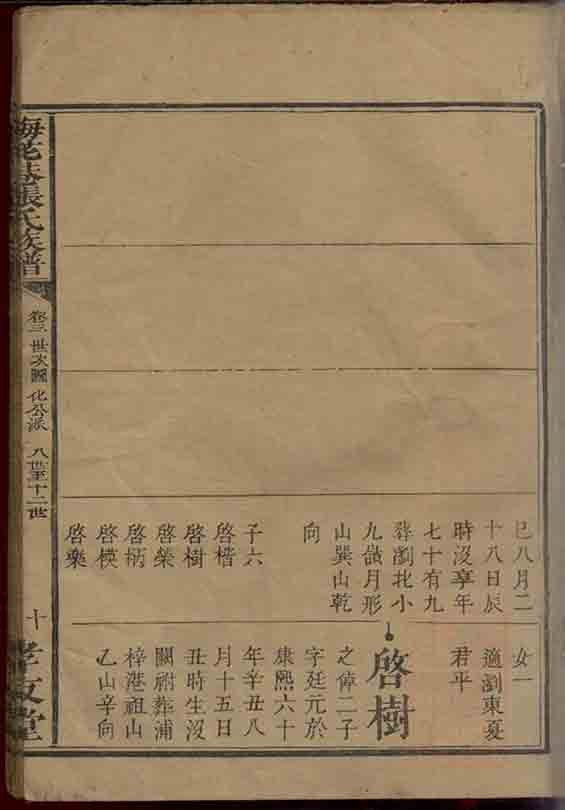 巳八月二
十八日辰
時沒享年
七十有九
葬瀏北小
九嶺月形
山巽山乾
向
子六
啓楷
啓樹
啓榮
啓柄
啓模
啓樂
女一
適瀏東夏
君平
啓樹
之倬二子
字廷元於
康熙六十
年辛丑八
月十五日
丑時生沒
闕祔葬浦
梓港祖山
乙山辛向
張氏族譜
卷三 世次圖 化公派 八世至十二世
十
孝友堂